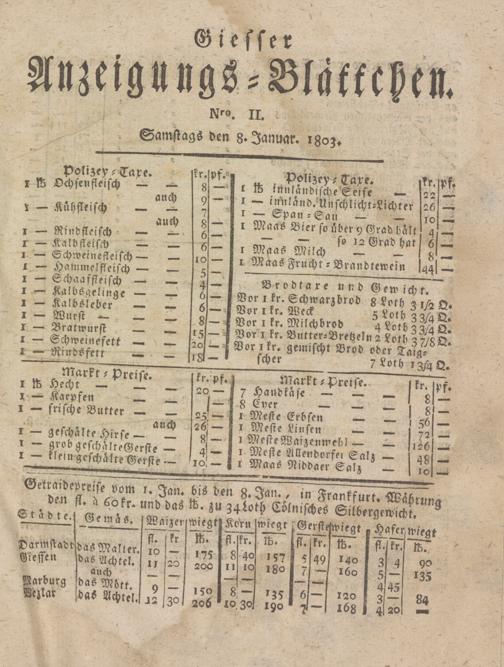 Giesser
Anzeigungs-Blättchen.
Nro. II.
Samstags den 8. Januar. 1803.
Polizey-Taxe. kr. pf.
1 ℔ Ochsenfleisch — — 8 —
auch 9 —
1 — Kühfleisch — — 7
auch 8 —
1 — Rindfleisch — — 6
1 — Kalbfleisch — — 6
1 — Schweinefleisch — 10
1 — Hammelfleisch — 5
1 — Schaaffleisch — 4
1 — Kalbsgelinge — — 6
1 — Kalbsleber — — 6
1 — Wurst — — 8
1 — Bratwurst — — 15
1 — Schweinefett — — 20
1 — Rindsfett — — 18 —
Polizey-Taxe. kr. pf.
1 ℔ innländische Seife — 22 —
1 — innländ. Unschlicht-Lichter 26 —
1 — Span-Sau — — 10 —
1 Maas Bier so über 9 Grad hält 4
— — so 12 Grad hat 6
1 Maas Milch — — 8 —
1 Maas Frucht-Brandtewein 44 —
Brodtaxe und Gewicht.
Vor 1 kr. Schwarzbrod 8 Loth 3 1/2 Q.
Vor 1 kr. Weck 5 Loth 3 3/4 Q.
Vor 1 kr. Milchbrod 4 Loth 3 3/4 Q.
Vor 1 kr. Butter-Bretzeln 2 Loth 3 7/8 Q.
Vor 1 kr. gemischt Brod oder Taig-
scher 7 Loth 1 3/4 Q.
Markt-Preise. kr. pf.
1 ℔ Hecht — — 20 —
1 — Karpfen — —
1 — frische Butter — — 25 —
auch 26 —
1 — geschälte Hirse — — 8
1 — grob geschälte Gerste — 4
1 — klein geschälte Gerste — 10 —
Markt-Preise.
7 Handkäse — — 8 —
8 Eyer — — 8 —
1 Meste Erbsen — 56 —
1 Meste Linsen — 72 —
1 Meste Waizenmehl — 126 —
1 Meste Allendorfer Salz — 48 —
1 Maas Niddaer Salz — 10 —
Getraidepreise vom 1. Jan. bis den 8. Jan., in Frankfurt. Währung
den fl. à 60 kr. und das ℔. zu 34 Loth Cölnisches Silbergewicht.
Städte. Gemäs. Waizen wiegt Korn wiegt Gerste wiegt Hafer wiegt
fl. kr ℔. fl. kr. ℔. fl. kr. ℔. fl. kr. ℔.
Darmstadt das Malter. 10 — 175 8 40 157 5 49 140 3 4 90
Giessen das Achtel. 11 20 200 11 10 180 7 — 160 5 — 135
auch — 4 45
Marburg das Mött. 9 — 150 8 — 135 6 — 120 3 — 84
Wezlar das Achtel. 12 30 206 10 30 190 7 — 168 4 20 —